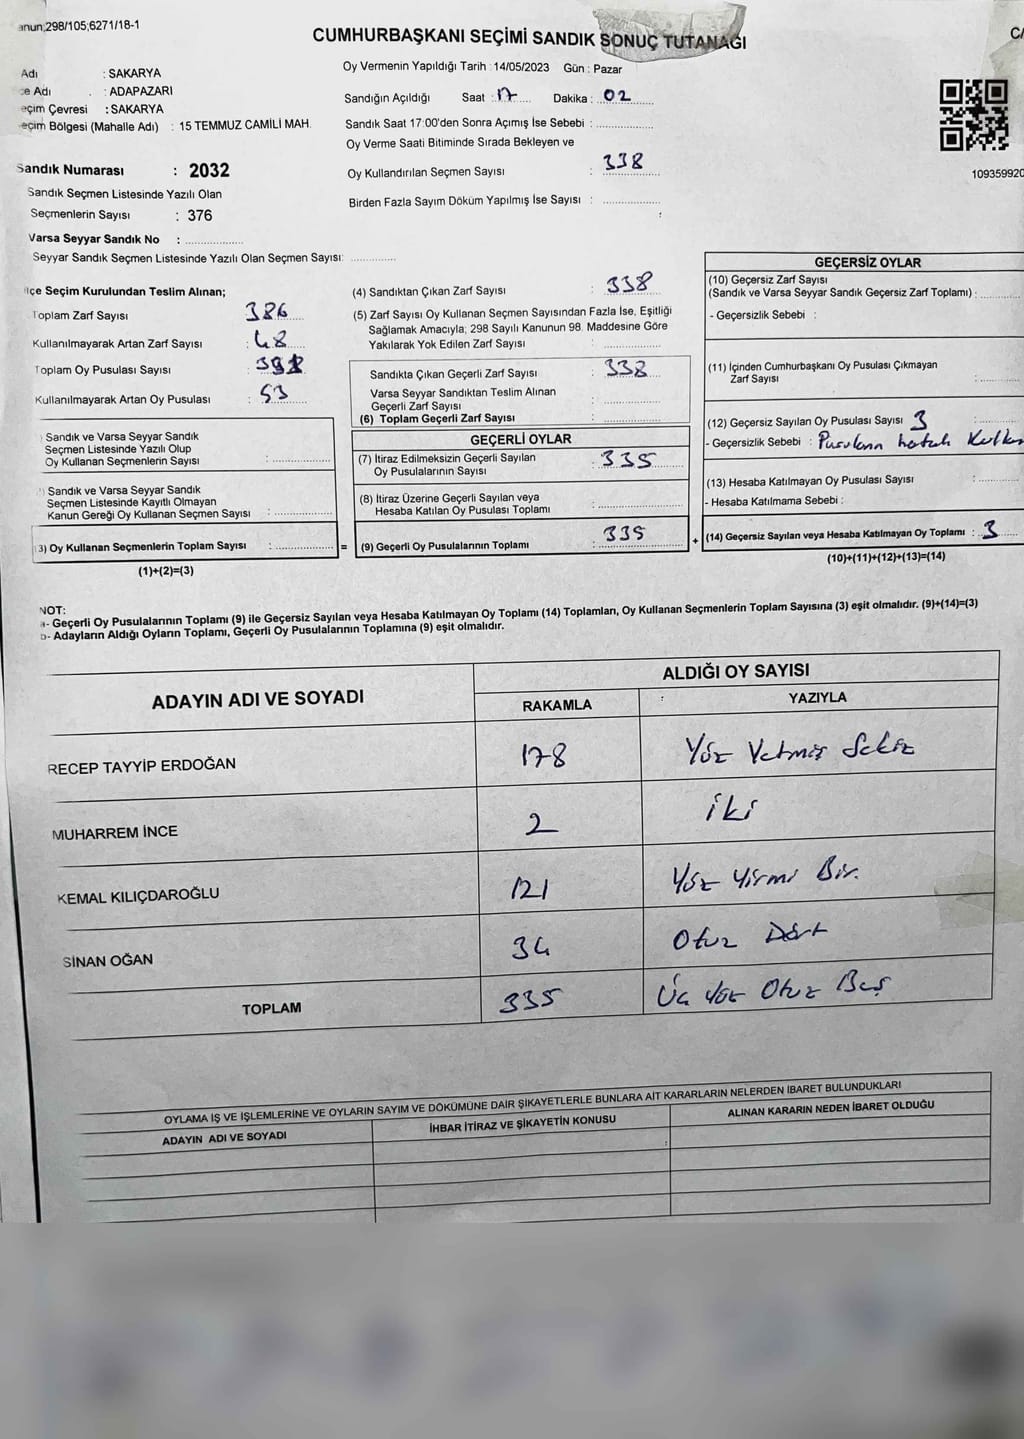 298/105;6271/18-1
CUMHURBAŞKANI SEÇİMİ SANDIK SONUÇ TUTANAĞI
Adı : SAKARYA
Adı : ADAPAZARI
Çevresi : SAKARYA
Bölgesi (Mahalle Adı) : 15 TEMMUZ CAMİLİ MAH.
Sandık Numarası : 2032
Sandık Seçmen Listesinde Yazılı Olan
Seçmenlerin Sayısı : 376
Varsa Seyyar Sandık No :
Seyyar Sandık Seçmen Listesinde Yazılı Olan Seçmen Sayısı:
Oy Vermenin Yapıldığı Tarih : 14/05/2023 Gün : Pazar
Sandığın Açıldığı Saat : 17 Dakika : 02
Sandık Saat 17:00'den Sonra Açımış İse Sebebi :
Oy Verme Saati Bitiminde Sırada Bekleyen ve
Oy Kullandırılan Seçmen Sayısı : 338
Birden Fazla Sayım Döküm Yapılmış İse Sayısı :
109359920
Seçim Kurulundan Teslim Alınan;
Toplam Zarf Sayısı : 386
Kullanılmayarak Artan Zarf Sayısı : 48
Toplam Oy Pusulası Sayısı :
Kullanılmayarak Artan Oy Pusulası : 53
Sandık ve Varsa Seyyar Sandık
Seçmen Listesinde Yazılı Olup
Oy Kullanan Seçmenlerin Sayısı :
Sandık ve Varsa Seyyar Sandık
Seçmen Listesinde Kayıtlı Olmayan
Kanun Gereği Oy Kullanan Seçmen Sayısı :
3) Oy Kullanan Seçmenlerin Toplam Sayısı : =
(1)+(2)=(3)
(4) Sandıktan Çıkan Zarf Sayısı : 338
(5) Zarf Sayısı Oy Kullanan Seçmen Sayısından Fazla İse, Eşitliği
Sağlamak Amacıyla; 298 Sayılı Kanunun 98. Maddesine Göre
Yakılarak Yok Edilen Zarf Sayısı :
Sandıkta Çıkan Geçerli Zarf Sayısı : 338
Varsa Seyyar Sandıktan Teslim Alınan
Geçerli Zarf Sayısı :
(6) Toplam Geçerli Zarf Sayısı :
GEÇERLİ OYLAR
(7) İtiraz Edilmeksizin Geçerli Sayılan
Oy Pusulalarının Sayısı : 335
(8) İtiraz Üzerine Geçerli Sayılan veya
Hesaba Katılan Oy Pusulası Toplamı :
(9) Geçerli Oy Pusulalarının Toplamı : 335 +
GEÇERSİZ OYLAR
(10) Geçersiz Zarf Sayısı
(Sandık ve Varsa Seyyar Sandık Geçersiz Zarf Toplamı) :
- Geçersizlik Sebebi :
(11) İçinden Cumhurbaşkanı Oy Pusulası Çıkmayan
Zarf Sayısı :
(12) Geçersiz Sayılan Oy Pusulası Sayısı 3
- Geçersizlik Sebebi : Pusulanın hatalı
(13) Hesaba Katılmayan Oy Pusulası Sayısı :
- Hesaba Katılmama Sebebi :
(14) Geçersiz Sayılan veya Hesaba Katılmayan Oy Toplamı : 3
(10)+(11)+(12)+(13)=(14)
NOT:
a- Geçerli Oy Pusulalarının Toplamı (9) ile Geçersiz Sayılan veya Hesaba Katılmayan Oy Toplamı (14) Toplamları, Oy Kullanan Seçmenlerin Toplam Sayısına (3) eşit olmalıdır. (9)+(14)=(3)
b- Adayların Aldığı Oyların Toplamı, Geçerli Oy Pusulalarının Toplamına (9) eşit olmalıdır.
ADAYIN ADI VE SOYADI
ALDIĞI OY SAYISI
RAKAMLA YAZIYLA
RECEP TAYYİP ERDOĞAN 178 Yüz Yetmiş Sekiz
MUHARREM İNCE 2 İki
KEMAL KILIÇDAROĞLU 121 Yüz Yirmi Bir.
SİNAN OĞAN 34 Otuz Dört
TOPLAM 335 Üç Yüz Otuz Beş
OYLAMA İŞ VE İŞLEMLERİNE VE OYLARIN SAYIM VE DÖKÜMÜNE DAİR ŞİKAYETLERLE BUNLARA AİT KARARLARIN NELERDEN İBARET BULUNDUKLARI
ADAYIN ADI VE SOYADI İHBAR İTİRAZ VE ŞİKAYETİN KONUSU ALINAN KARARIN NEDEN İBARET OLDUĞU